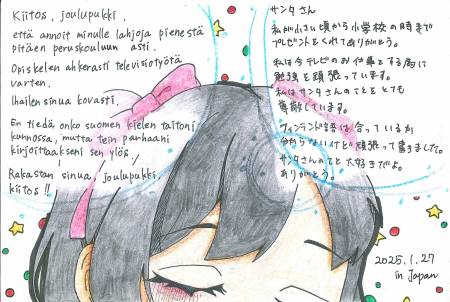 Kiitos, joulupukki,
että annoit minulle lahjoja pienestä
pitäen peruskouluun asti.
Opiskelen ahkerasti televisiotyötä
varten.
Ihailen sinua kovasti.
En tiedä onko suomen kielen taitoni
kunnossa, mutta tein parhaani
kirjoittaakseni sen ylös
Rakastan sinua, joulupukki,
kiitos!!
サンタさん
私が小さい頃から小学校の時まで
プレゼントをくれてありがとう。
私は今テレビのお仕事をする為に
勉強を頑張っています。
私はサンタさんのことをとても
尊敬しています。
フィンランド語は合っているか
分からないけど頑張って書きました。
サンタさんのこと大好きだよ。
ありがとう。
2025.1.27
in Japan